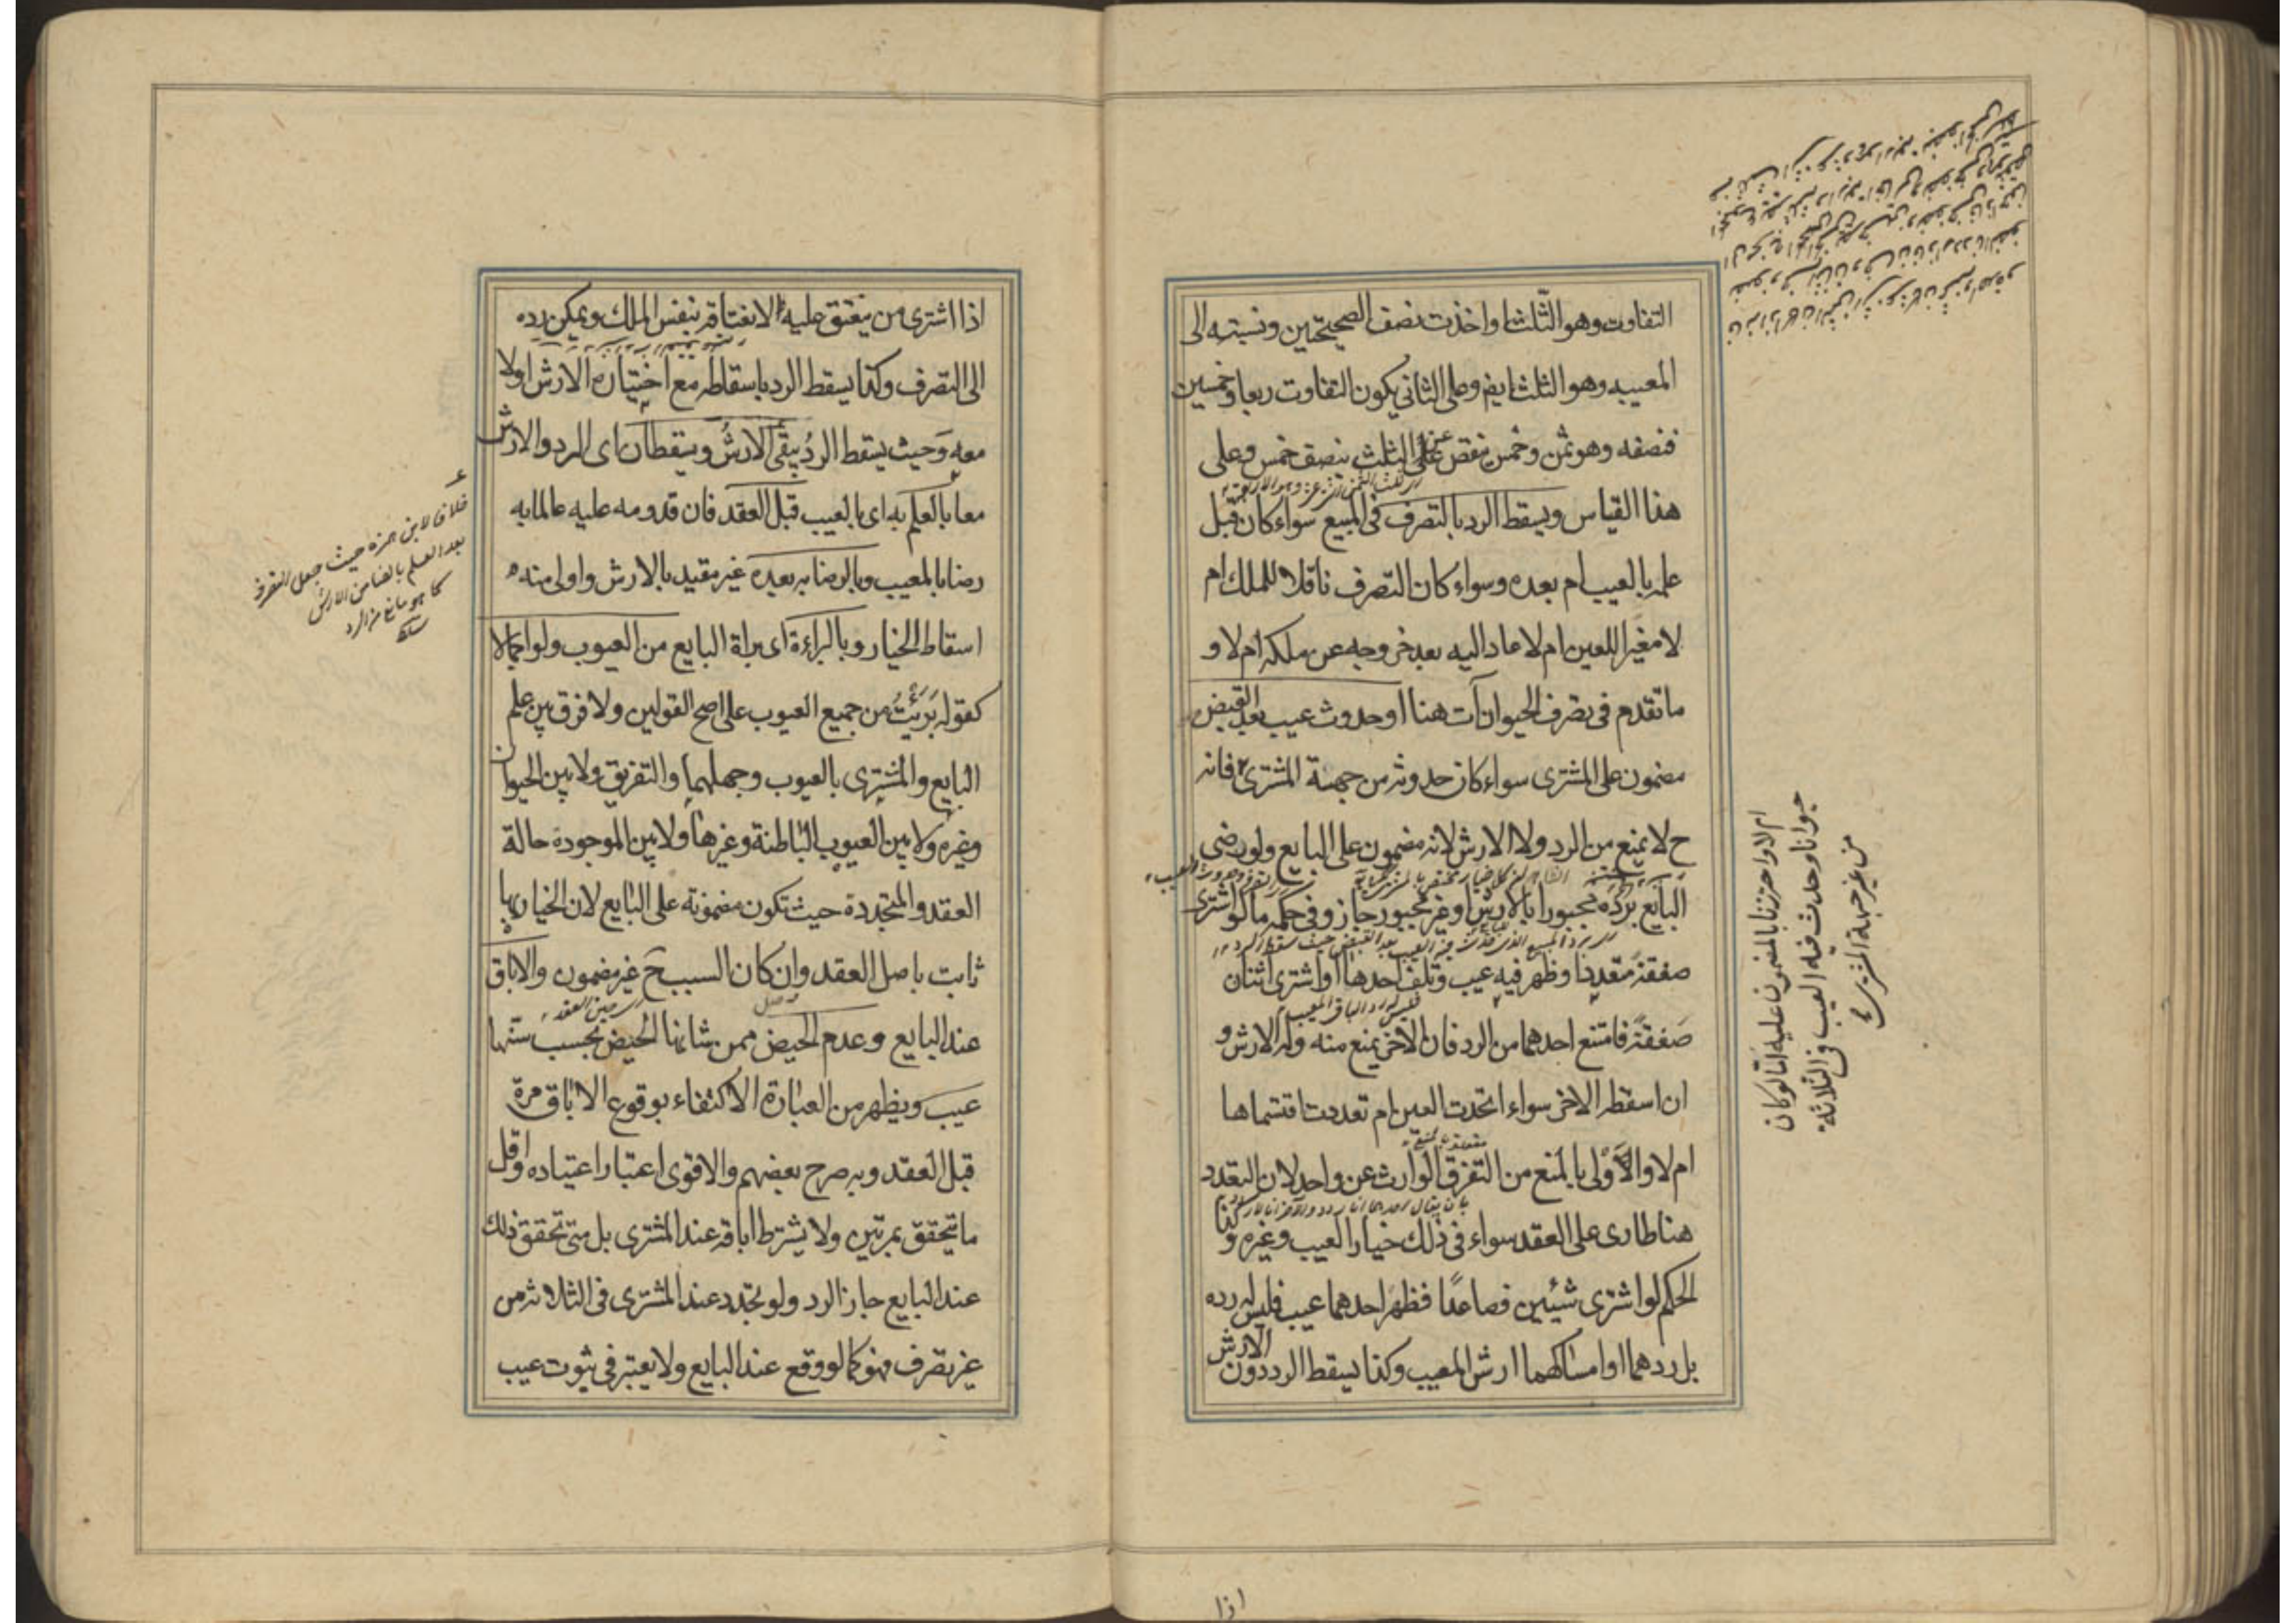 التفاوت وهو الثلث او اخذت نصف الصحيحتين ونسبته الى
المعيبه وهو الثلث ايضم وعلى الثاني يكون التفاوت ربعا وخمسين
فنصفه وهو ثمن وخمس ينقص عن الثلث بنصف خمس وعلى
هذا القياس ويسقط الرد بالتصرف فى المبيع سواء كان قبل
علمه بالعيب ام بعده وسواء كان التصرف ناقلا للملك ام
لا مغيرا للعين ام لا عاد اليه بعد خروجه عن ملكه ام لا و
ما تقدم فى تصرف الحيوان آت هنا او حدوث عيب بعد القبض
مضمون على المشترى سواء كان حدوثه من جهة المشترى فانه
ح لا يمنع من الرد ولا الارش لانه مضمون على البايع ولو رضى
البايع برده مجبورا بالارش او غير مجبور جاز وفى حكمه ما لو اشترى
صفقة متعددا وظهر فيه عيب وتلف احدها او اشترى اثنان
صفقة فامتنع احدهما من الرد فان الاخر يمنع منه وله الارش و
ان اسقطه الاخر سواء اتحدت العين ام تعددت اقتسماها
ام لا والاولى بالمنع من التفرق الوارث عن واحد لان التعدد
هنا طارى على العقد سواء فى ذلك خيار العيب وغيره وكذا
الحكم لو اشترى شيئين فصاعدا فظهر احدهما عيب فليس له رده
بل ردهما او امساكهما ارش المعيب وكذا يسقط الرد دون الارش
ام لا واحترزنا بالمضمون عليه عما لو كان
حيوانا وحدث فيه العيب فى الثلاثة
من غير جهة المشترى
اذا
اذا اشترى من ينعتق عليه لانعتاقه بنفس الملك ويمكن رده
الى التصرف وكذا يسقط الرد باسقاطه مع اختياره الارش او لا
معه وحيث يسقط الرد يبقى الارش ويسقطان اى الرد والارش
معا بالعلم به اى بالعيب قبل العقد فان قدومه عليه عالما به
رضا بالمعيب وبالرضا به بعده غير مقيد بالارش واولى منه
اسقاط الخيار وبالبراءة اى براة البايع من العيوب ولو اجمالا
كقوله برئت من جميع العيوب على اصح القولين ولا فرق بين علم
البايع والمشترى بالعيوب وجهلهما والتفريق ولا بين الحيوان
وغيره ولا بين العيوب الباطنة وغيرها ولا بين الموجودة حالة
العقد والمتجددة حيث تكون مضمونة على البايع لان الخيار بها
ثابت باصل العقد وان كان السبب ح غير مضمون والاباق
عند البايع وعدم الحيض ممن شانها الحيض بحسب سنها
عيب ويظهر من العبارة الاكتفاء بوقوع الاباق مرة
قبل العقد وبه صرح بعضهم والاقوى اعتبار اعتياده واقل
ما يتحقق بمرتين ولا يشترط اباقه عند المشترى بل متى تحقق ذلك
عند البايع جاز الرد ولو تجدد عند المشترى فى الثلاثة من
غير تصرف فهو كما لو وقع عند البايع ولا يعتبر فى ثبوت عيب
خلافا لابن حمزه حيث جعل التصرف
بعد العلم مانعا من الارش
كما هو مانع من الرد